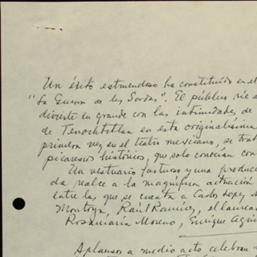 Un éxito estruendoso ha constituido en el
"La Guerra de las Gordas". El público rie a
divierte en grande con las intimidades, de
de Tenochtitlan en esta originalísima
primera vez en el teatro mexicano, se trata
picaresco histórico, que solo conocían con
Un vestuario fastuoso y una produc
da realce a la magnífica actuación
entre las que se cuenta a Carlos López
Montoya, Raúl Ramírez, el laurea
Rosa María Moreno, Enrique
Aplausos a medio acto celebran